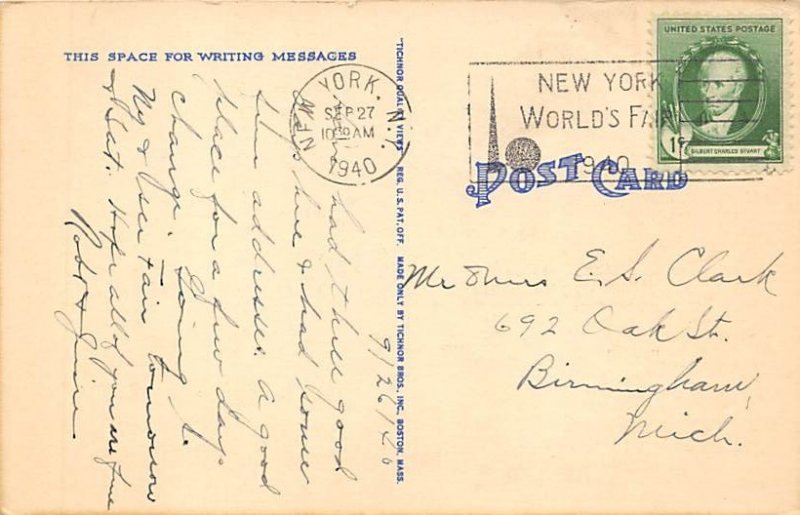 THIS SPACE FOR WRITING MESSAGES
9/26/40
had three good
days here & had some
fine addresses. A good
place for a few days
change. Going to
N.Y & See Fair tomorrow
& Sat. Hope all of you are fine
Robt &
"TICHNOR QUALITY VIEWS" REG. U.S. PAT. OFF. MADE ONLY BY TICHNOR BROS., INC., BOSTON, MASS.
NEW YORK, N.Y.
SEP 27
AM
1940
NEW YORK
WORLD'S FAIR
1940
UNITED STATES POSTAGE
1¢
GILBERT CHARLES STUART
POST CARD
Mr & Mrs E. S. Clark
692 Oak St.
Birmingham,
Mich.